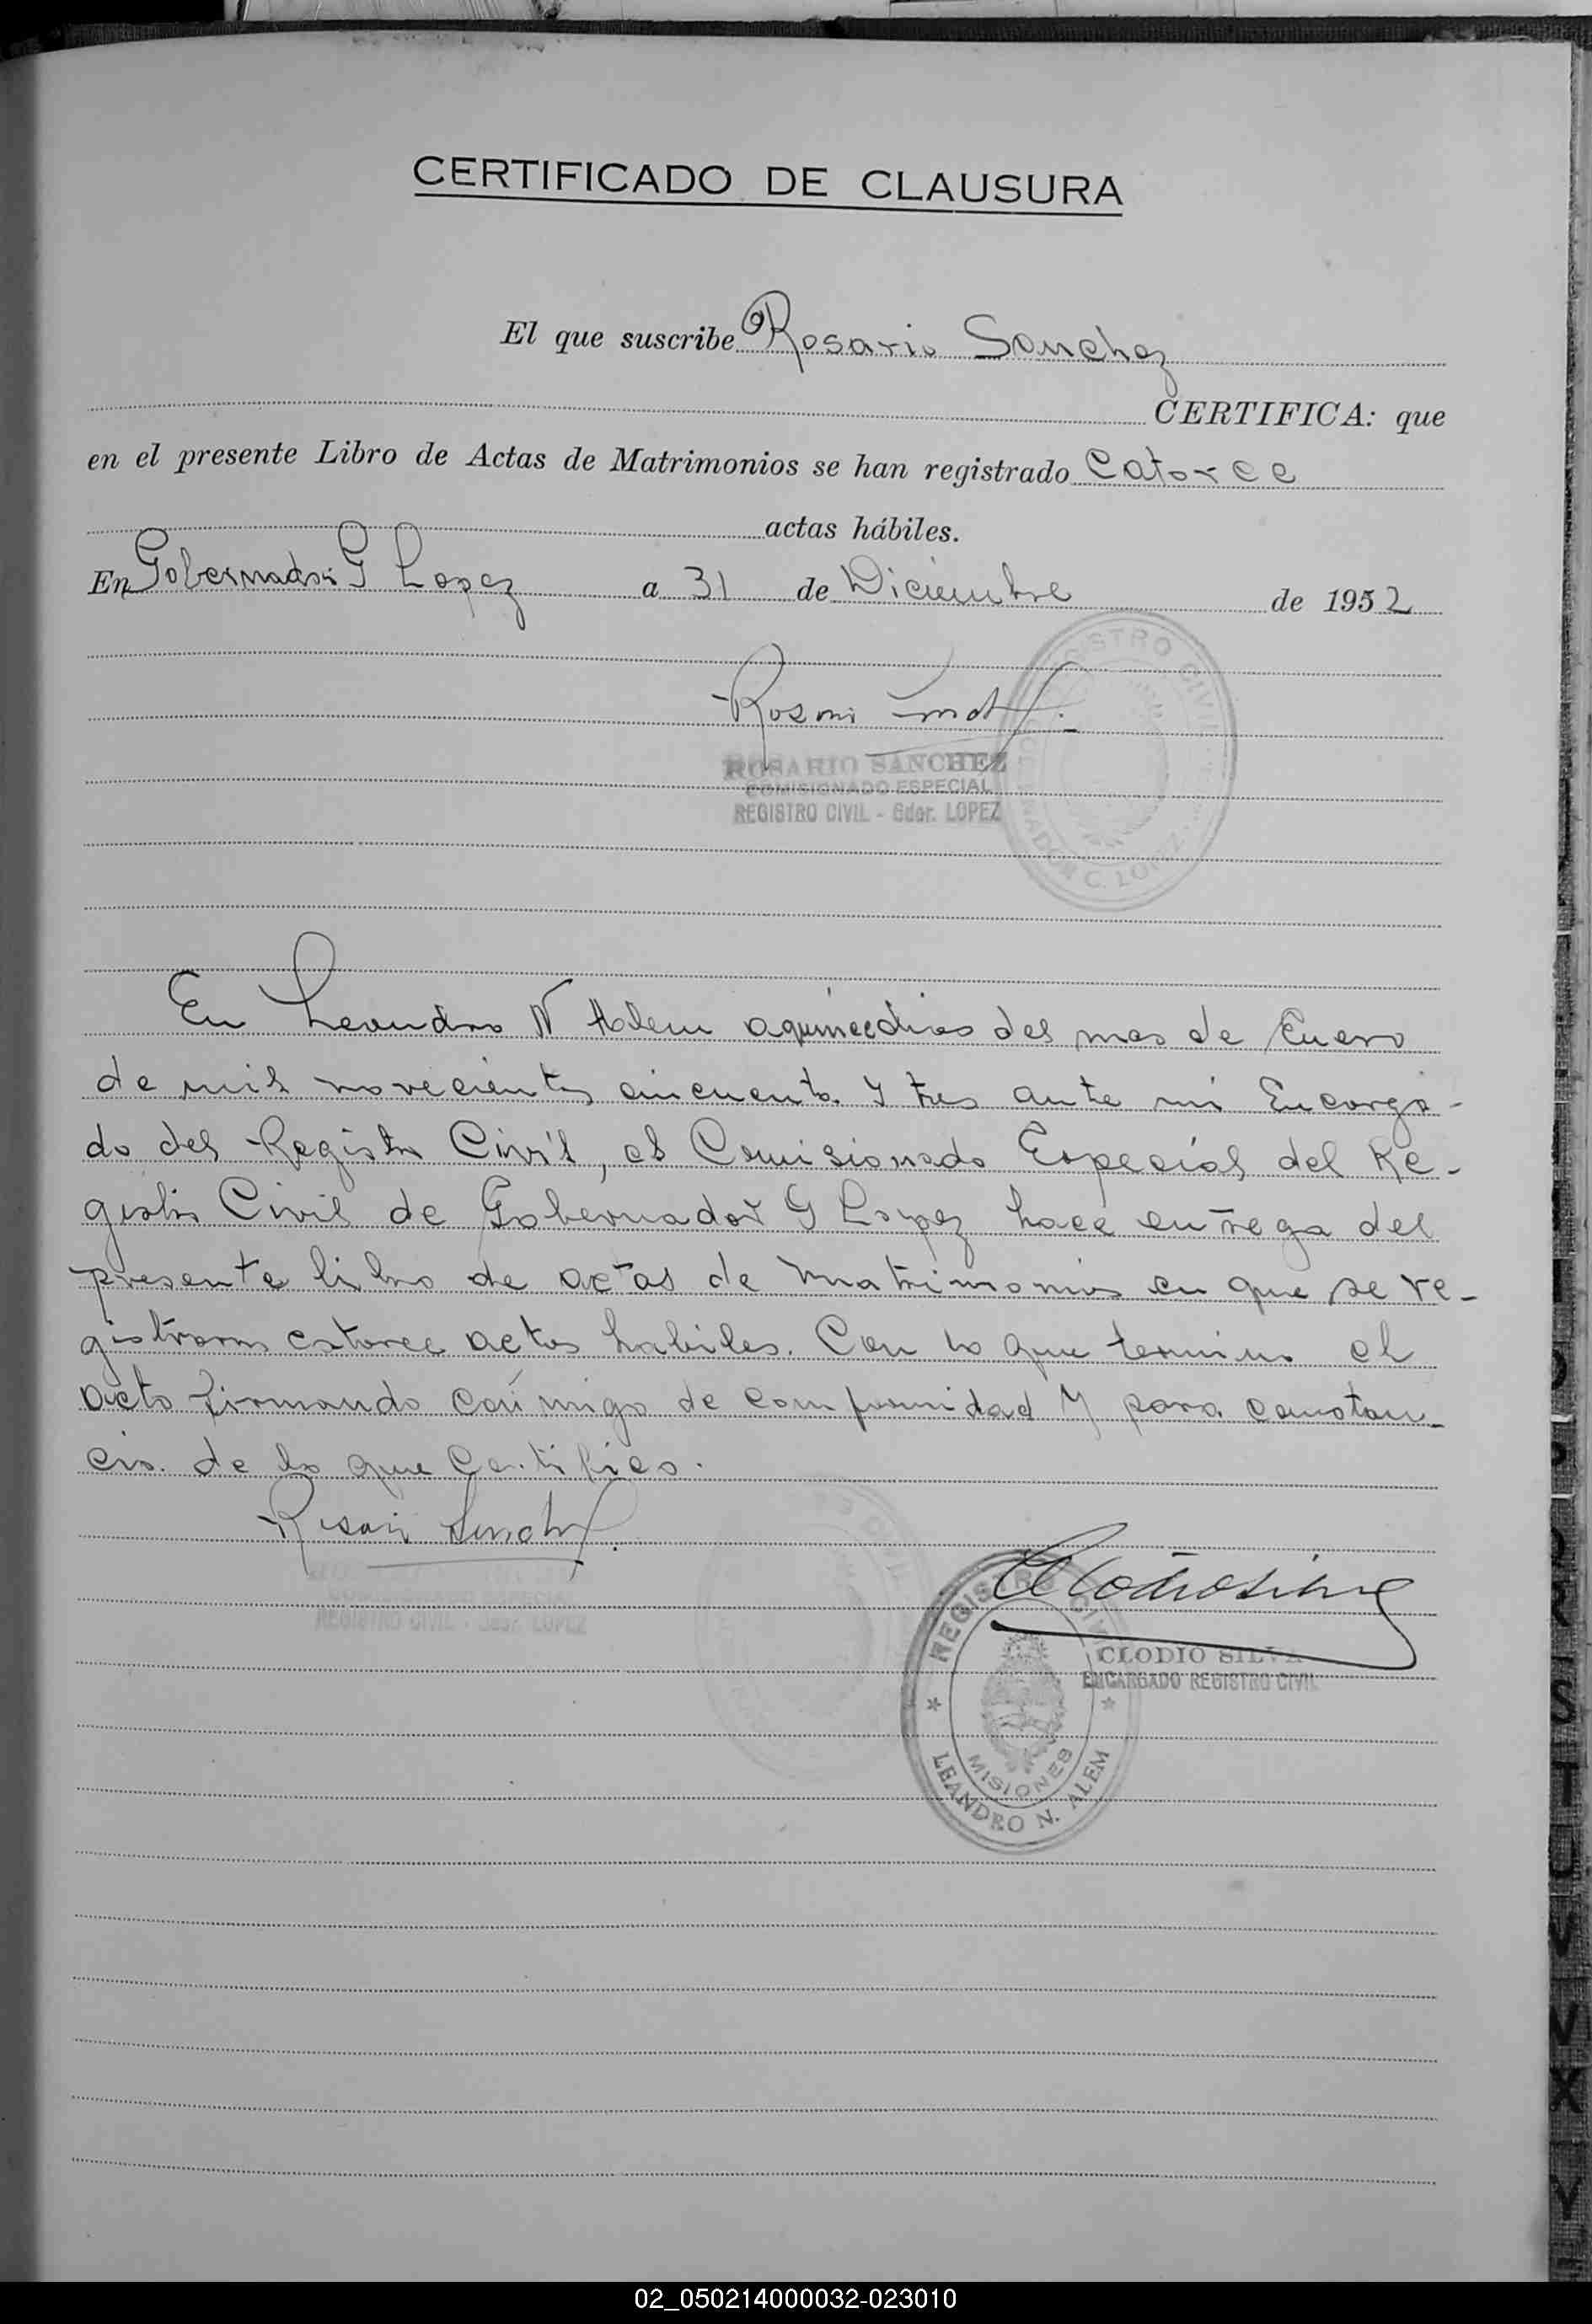 CERTIFICADO DE CLAUSURA
El que suscribe Rosario Sanchez
CERTIFICA: que
en el presente Libro de Actas de Matrimonios se han registrado Catorce
actas hábiles.
En Gobernador G Lopez a 31 de Diciembre de 1952
REGISTRO CIVIL
Rosario Sanchez
ROSARIO SANCHEZ
COMISIONADO ESPECIAL
REGISTRO CIVIL - Gdor. LOPEZ
En Leandro N Alem a quince dias del mes de Enero
de mil novecientos cincuenta y tres ante mi Encarga-
do del Registro Civil, el Comisionado Especial del Re-
gistro Civil de Gobernador G Lopez hace entrega del
presente libro de actas de Matrimonios en que se re-
gistraron catorce actas habiles. Con lo que termino el
acto firmando conmigo de conformidad y para constan-
cia. de lo que Certifico.
Rosario Sanchez
COMISIONADO ESPECIAL
REGISTRO CIVIL - Gdor. LOPEZ
Clodio Silva
CLODIO SILVA
ENCARGADO REGISTRO CIVIL
REGISTRO CIVIL
MISIONES
LEANDRO N. ALEM
02_050214000032-023010